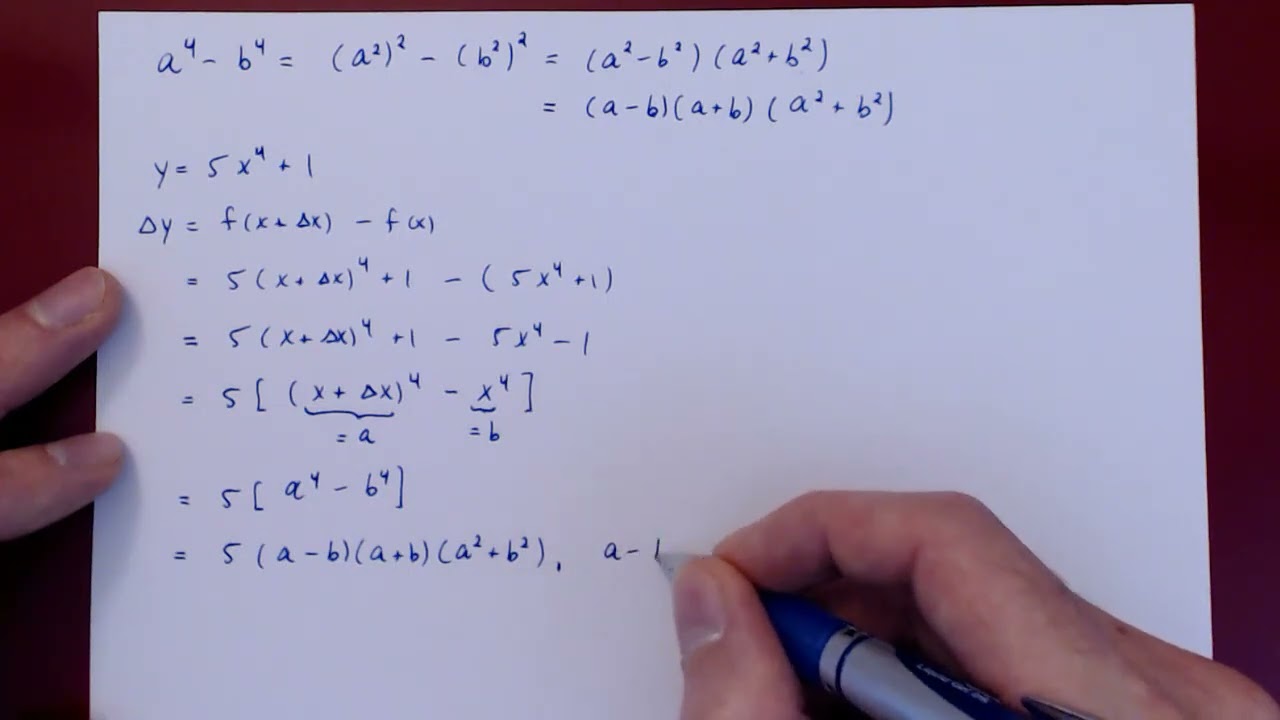 a⁴ - b⁴ = (a²)² - (b²)² = (a² - b²)(a² + b²)
= (a - b)(a + b)(a² + b²)
y = 5x⁴ + 1
Δy = f(x + Δx) - f(x)
= 5(x + Δx)⁴ + 1 - (5x⁴ + 1)
= 5(x + Δx)⁴ + 1 - 5x⁴ - 1
= 5[(x + Δx)⁴ - x⁴]
= a = b
= 5[a⁴ - b⁴]
= 5(a - b)(a + b)(a² + b²), a -